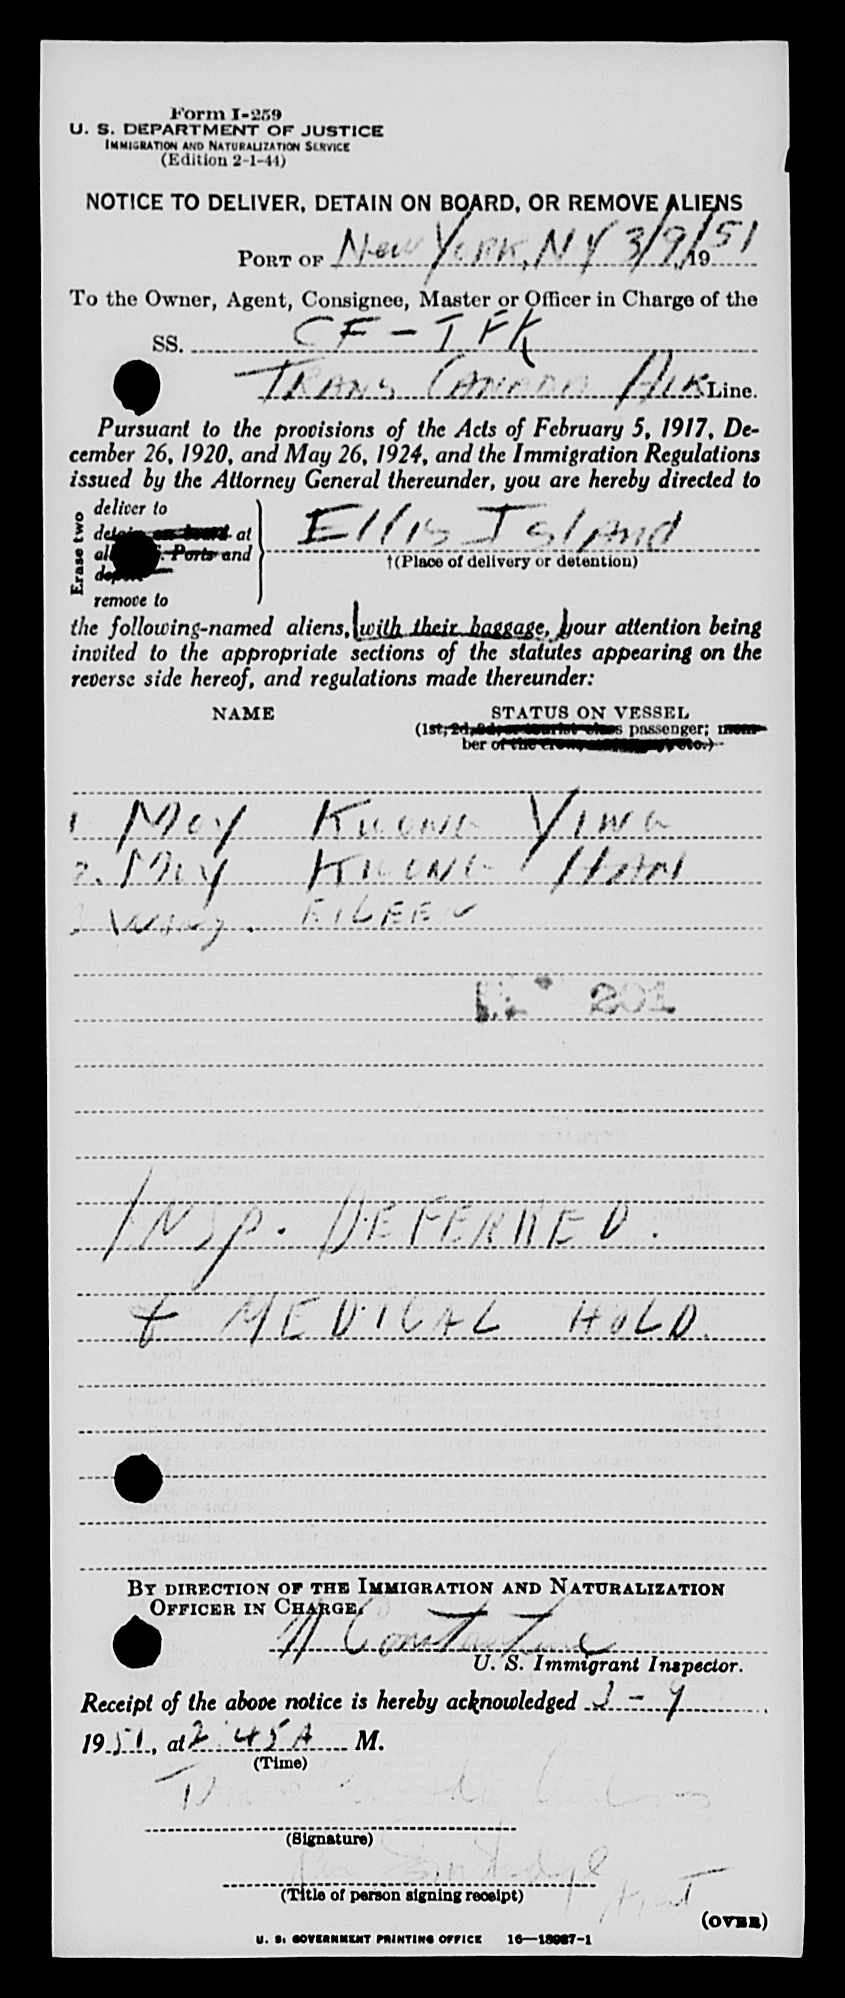 Form I-259
U. S. DEPARTMENT OF JUSTICE
IMMIGRATION AND NATURALIZATION SERVICE
(Edition 2-1-44)
NOTICE TO DELIVER, DETAIN ON BOARD, OR REMOVE ALIENS
PORT OF New York, NY 3/9/, 1951
To the Owner, Agent, Consignee, Master or Officer in Charge of the
SS. CF-TFK
TRANS CANADA AIR Line.
Pursuant to the provisions of the Acts of February 5, 1917, De-
cember 26, 1920, and May 26, 1924, and the Immigration Regulations
issued by the Attorney General thereunder, you are hereby directed to
Erase two
deliver to
detain on board at
Ports and
remove to
Ellis Island
†(Place of delivery or detention)
the following-named aliens, with their baggage, your attention being
invited to the appropriate sections of the statutes appearing on the
reverse side hereof, and regulations made thereunder:
NAME STATUS ON VESSEL
(1st, 2d, 3d, or tourist class passenger; mem-
ber of the crew, etc.)
1. MOY KUONG YING
2. MOY KUONG HAM
3 Wong. EILEEN
201
INSP. DEFERRED.
+ MEDICAL HOLD.
BY DIRECTION OF THE IMMIGRATION AND NATURALIZATION
OFFICER IN CHARGE,
N Constantine
U. S. Immigrant Inspector.
Receipt of the above notice is hereby acknowledged 3-9
1951, at 2:45 A M.
(Time)
(Signature)
Agent
(Title of person signing receipt)
(OVER)
U. S. GOVERNMENT PRINTING OFFICE 16—13987-1